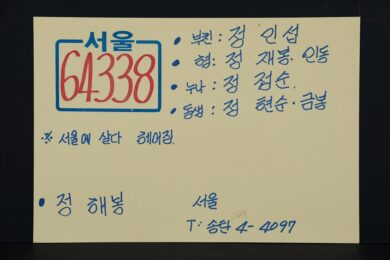 서울
64338
• 부친 : 정 인섭
• 형 : 정 재봉. 인동
• 누나 : 정 점순.
• 동생 : 정 현순 · 금봉
※ 서울에 살다 헤어짐.
• 정 해봉
서울
T : 송탄 4-4097